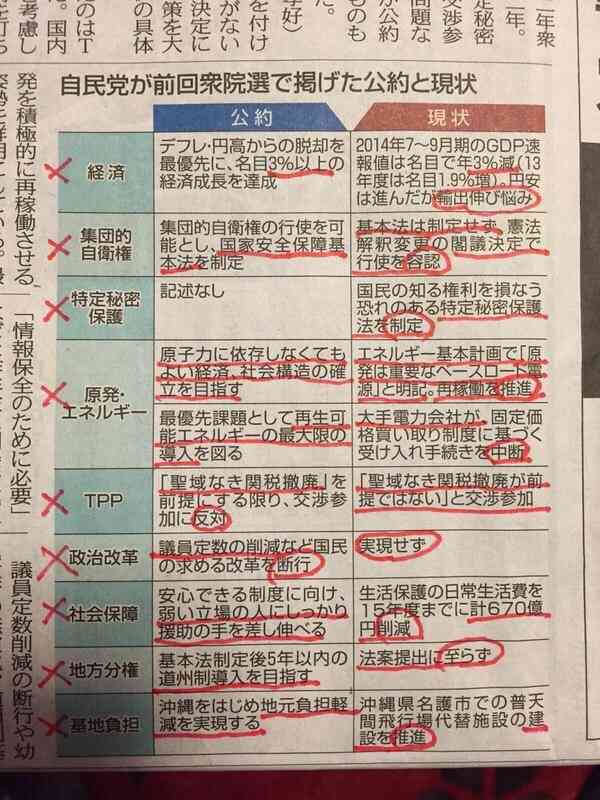 定秘密
交渉参
問題な
が公約
ものも
た。
を付け
がない
決定に
策を大
の具体
のはT
る。国内
考慮し
自民党が前回衆院選で掲げた公約と現状
公約
現状
経済
デフレ・円高からの脱却を
最優先に、名目3％以上の
経済成長を達成
2014年7～9月期のGDP速
報値は名目で年3％減（13
年度は名目1.9％増）。円安
は進んだが輸出伸び悩み
集団的
自衛権
集団的自衛権の行使を可
能とし、国家安全保障基
本法を制定
基本法は制定せず、憲法
解釈変更の閣議決定で
行使を容認
特定秘密
保護
記述なし
国民の知る権利を損なう
恐れのある特定秘密保護
法を制定
原発・
エネルギー
原子力に依存しなくても
よい経済、社会構造の確
立を目指す
エネルギー基本計画で「原
発は重要なベースロード電
源」と明記。再稼働を推進
最優先課題として再生可
能エネルギーの最大限の
導入を図る
大手電力会社が、固定価
格買い取り制度に基づく
受け入れ手続きを中断
TPP
「聖域なき関税撤廃」を
前提にする限り、交渉参
加に反対
「聖域なき関税撤廃が前
提ではない」と交渉参加
政治改革
議員定数の削減など国民
の求める改革を断行
実現せず
社会保障
安心できる制度に向け、
弱い立場の人にしっかり
援助の手を差し伸べる
生活保護の日常生活費を
15年度までに計670億
円削減
地方分権
基本法制定後5年以内の
道州制導入を目指す
法案提出に至らず
基地負担
沖縄をはじめ地元負担軽
減を実現する
沖縄県名護市での普天
間飛行場代替施設の建
設を推進
発を積極的に再稼働させる
「情報保全のために必要」
議員定数削減の断行や幼